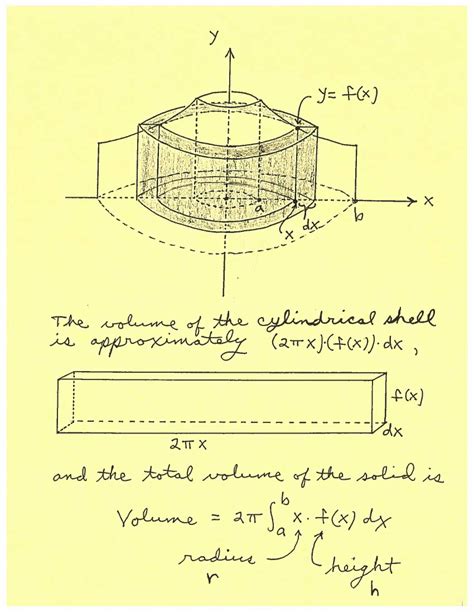 y
y = f(x)
x
a
b
x
dx
The volume of the cylindrical shell
is approximately (2πx)·(f(x))·dx,
f(x)
dx
2πx
and the total volume of the solid is
Volume = 2π ∫_a^b x · f(x) dx
radius
height
r
h